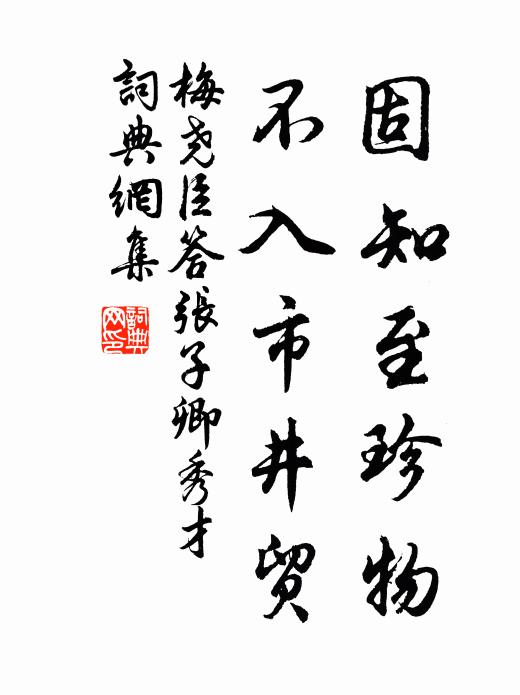 固知至珍物
不入市井贸
梅尧臣答張子卿秀才
詞典網集
詞典网印